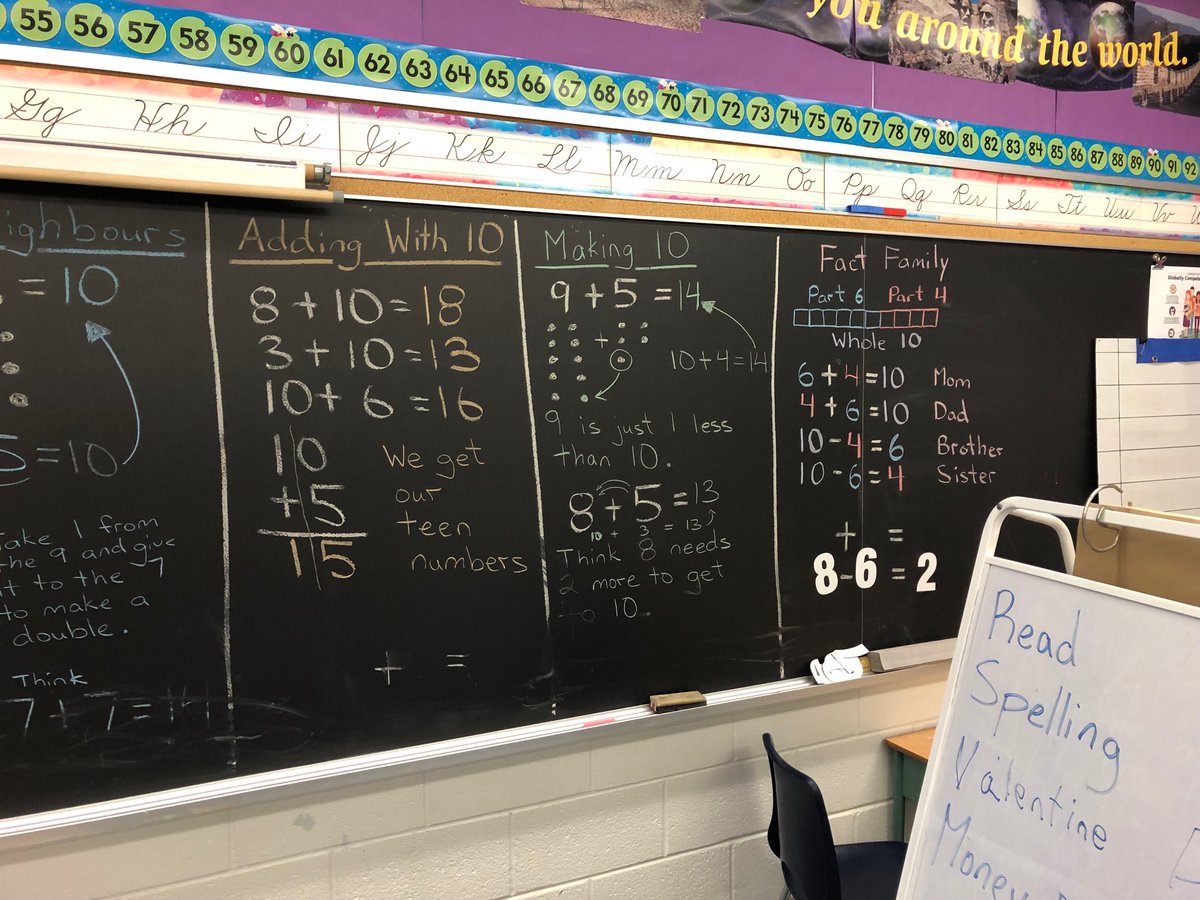 you around the world.
55 56 57 58 59 60 61 62 63 64 65 66 67 68 69 70 71 72 73 74 75 76 77 78 79 80 81 82 83 84 85 86 87 88 89 90 91 92
Gg Hh Ii Jj Kk Ll Mm Nn Oo Pp Qq Rr Ss Tt Uu Vv
ighbours
= 10
5 = 10
Take 1 from
the 9 and give
it to the 7
to make a
double.
Think
7 + 7 = 14
Adding With 10
8 + 10 = 18
3 + 10 = 13
10 + 6 = 16
10
+ 5
15
We get
our
teen
numbers
+ =
Making 10
9 + 5 = 14
+
10 + 4 = 14
9 is just 1 less
than 10.
8 + 5 = 13
10 + 3 = 13
Think 8 needs
2 more to get
to 10
Fact Family
Part 6 Part 4
Whole 10
6 + 4 = 10 Mom
4 + 6 = 10 Dad
10 - 4 = 6 Brother
10 - 6 = 4 Sister
+ =
8 - 6 = 2
Globally Compete
Read
Spelling
Valentine
Money